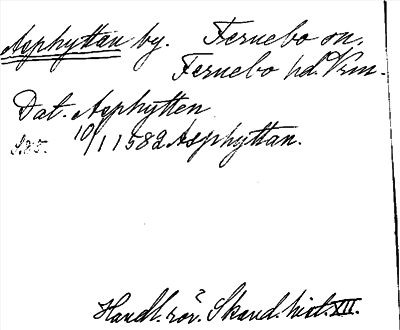 Asphyttan by. Fernebo sn.
Fernebo hd. Vrm.
Dat. Asphytten
10/1 1582 Asphyttan.
Handl. rör. Skand. hist. XII.